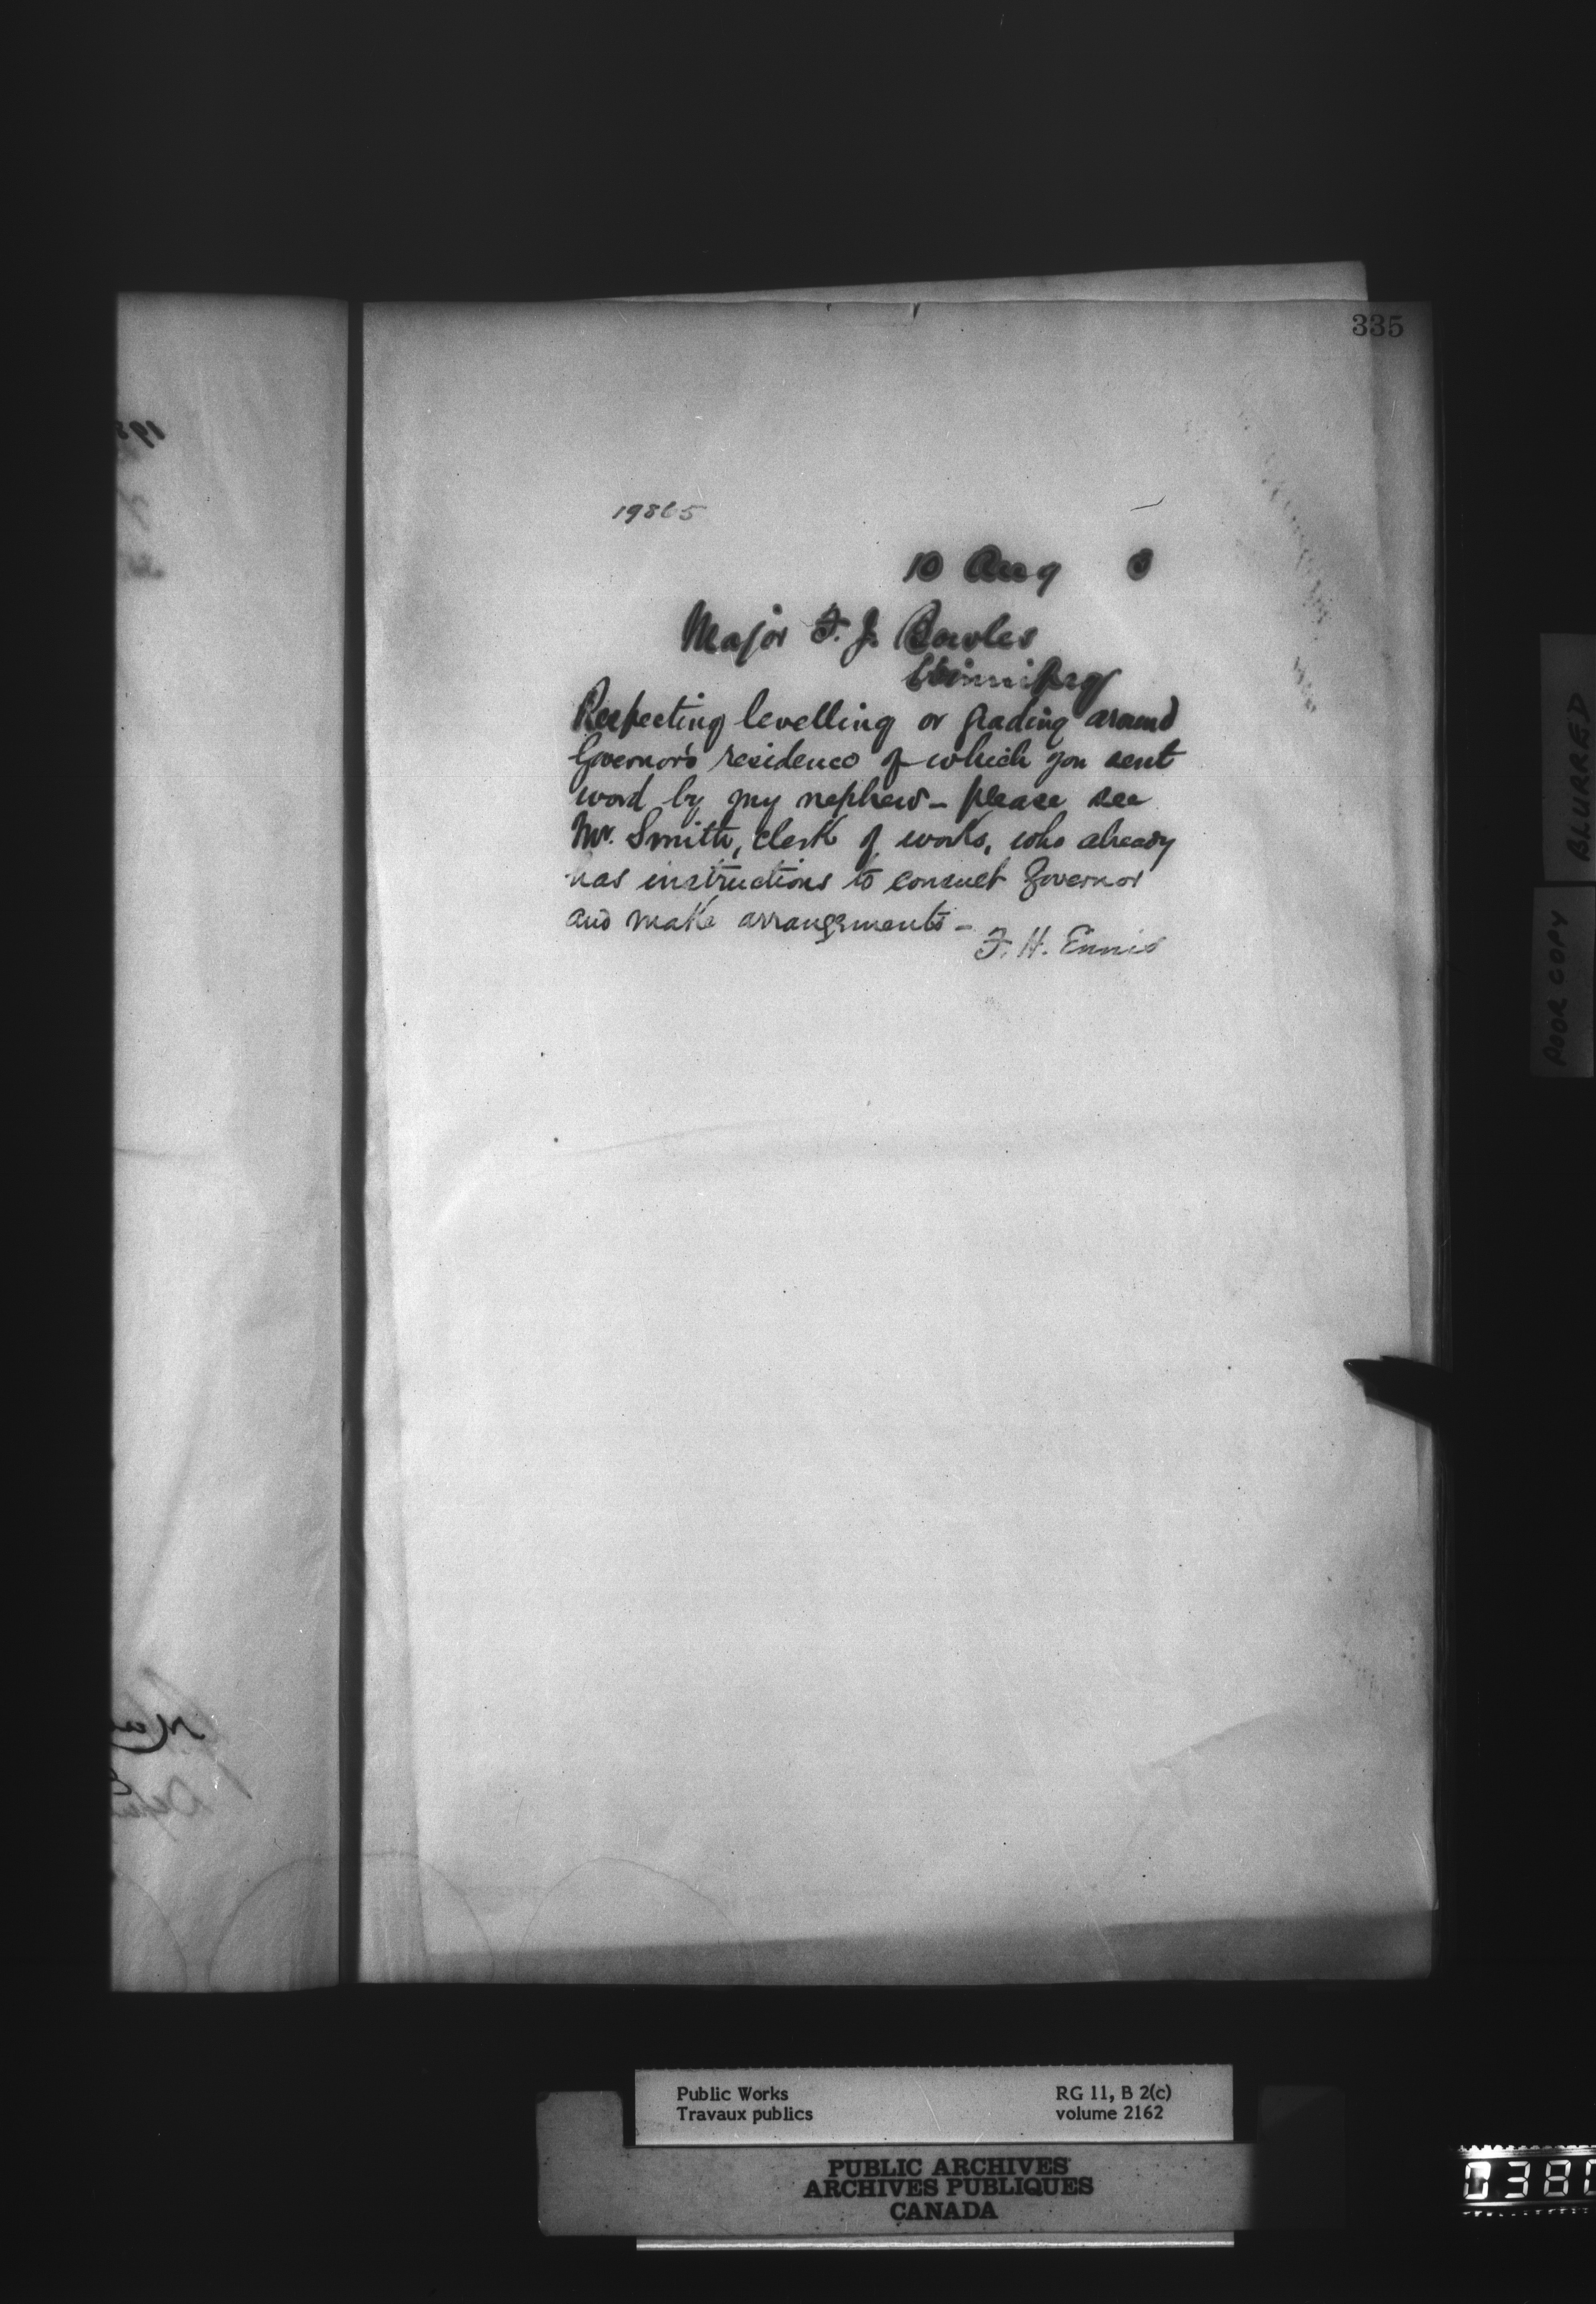 335
19865
10 Aug 3
Major F. J. Bowles
Winnipeg
Respecting levelling or grading around
Governor's residence of which you sent
word by my nephew - please see
Mr. Smith, clerk of works, who already
has instructions to consult Governor
and make arrangements -
F. H. Ennis
BLURRED
POOR COPY
Public Works
Travaux publics
RG 11, B 2(c)
volume 2162
PUBLIC ARCHIVES
ARCHIVES PUBLIQUES
CANADA